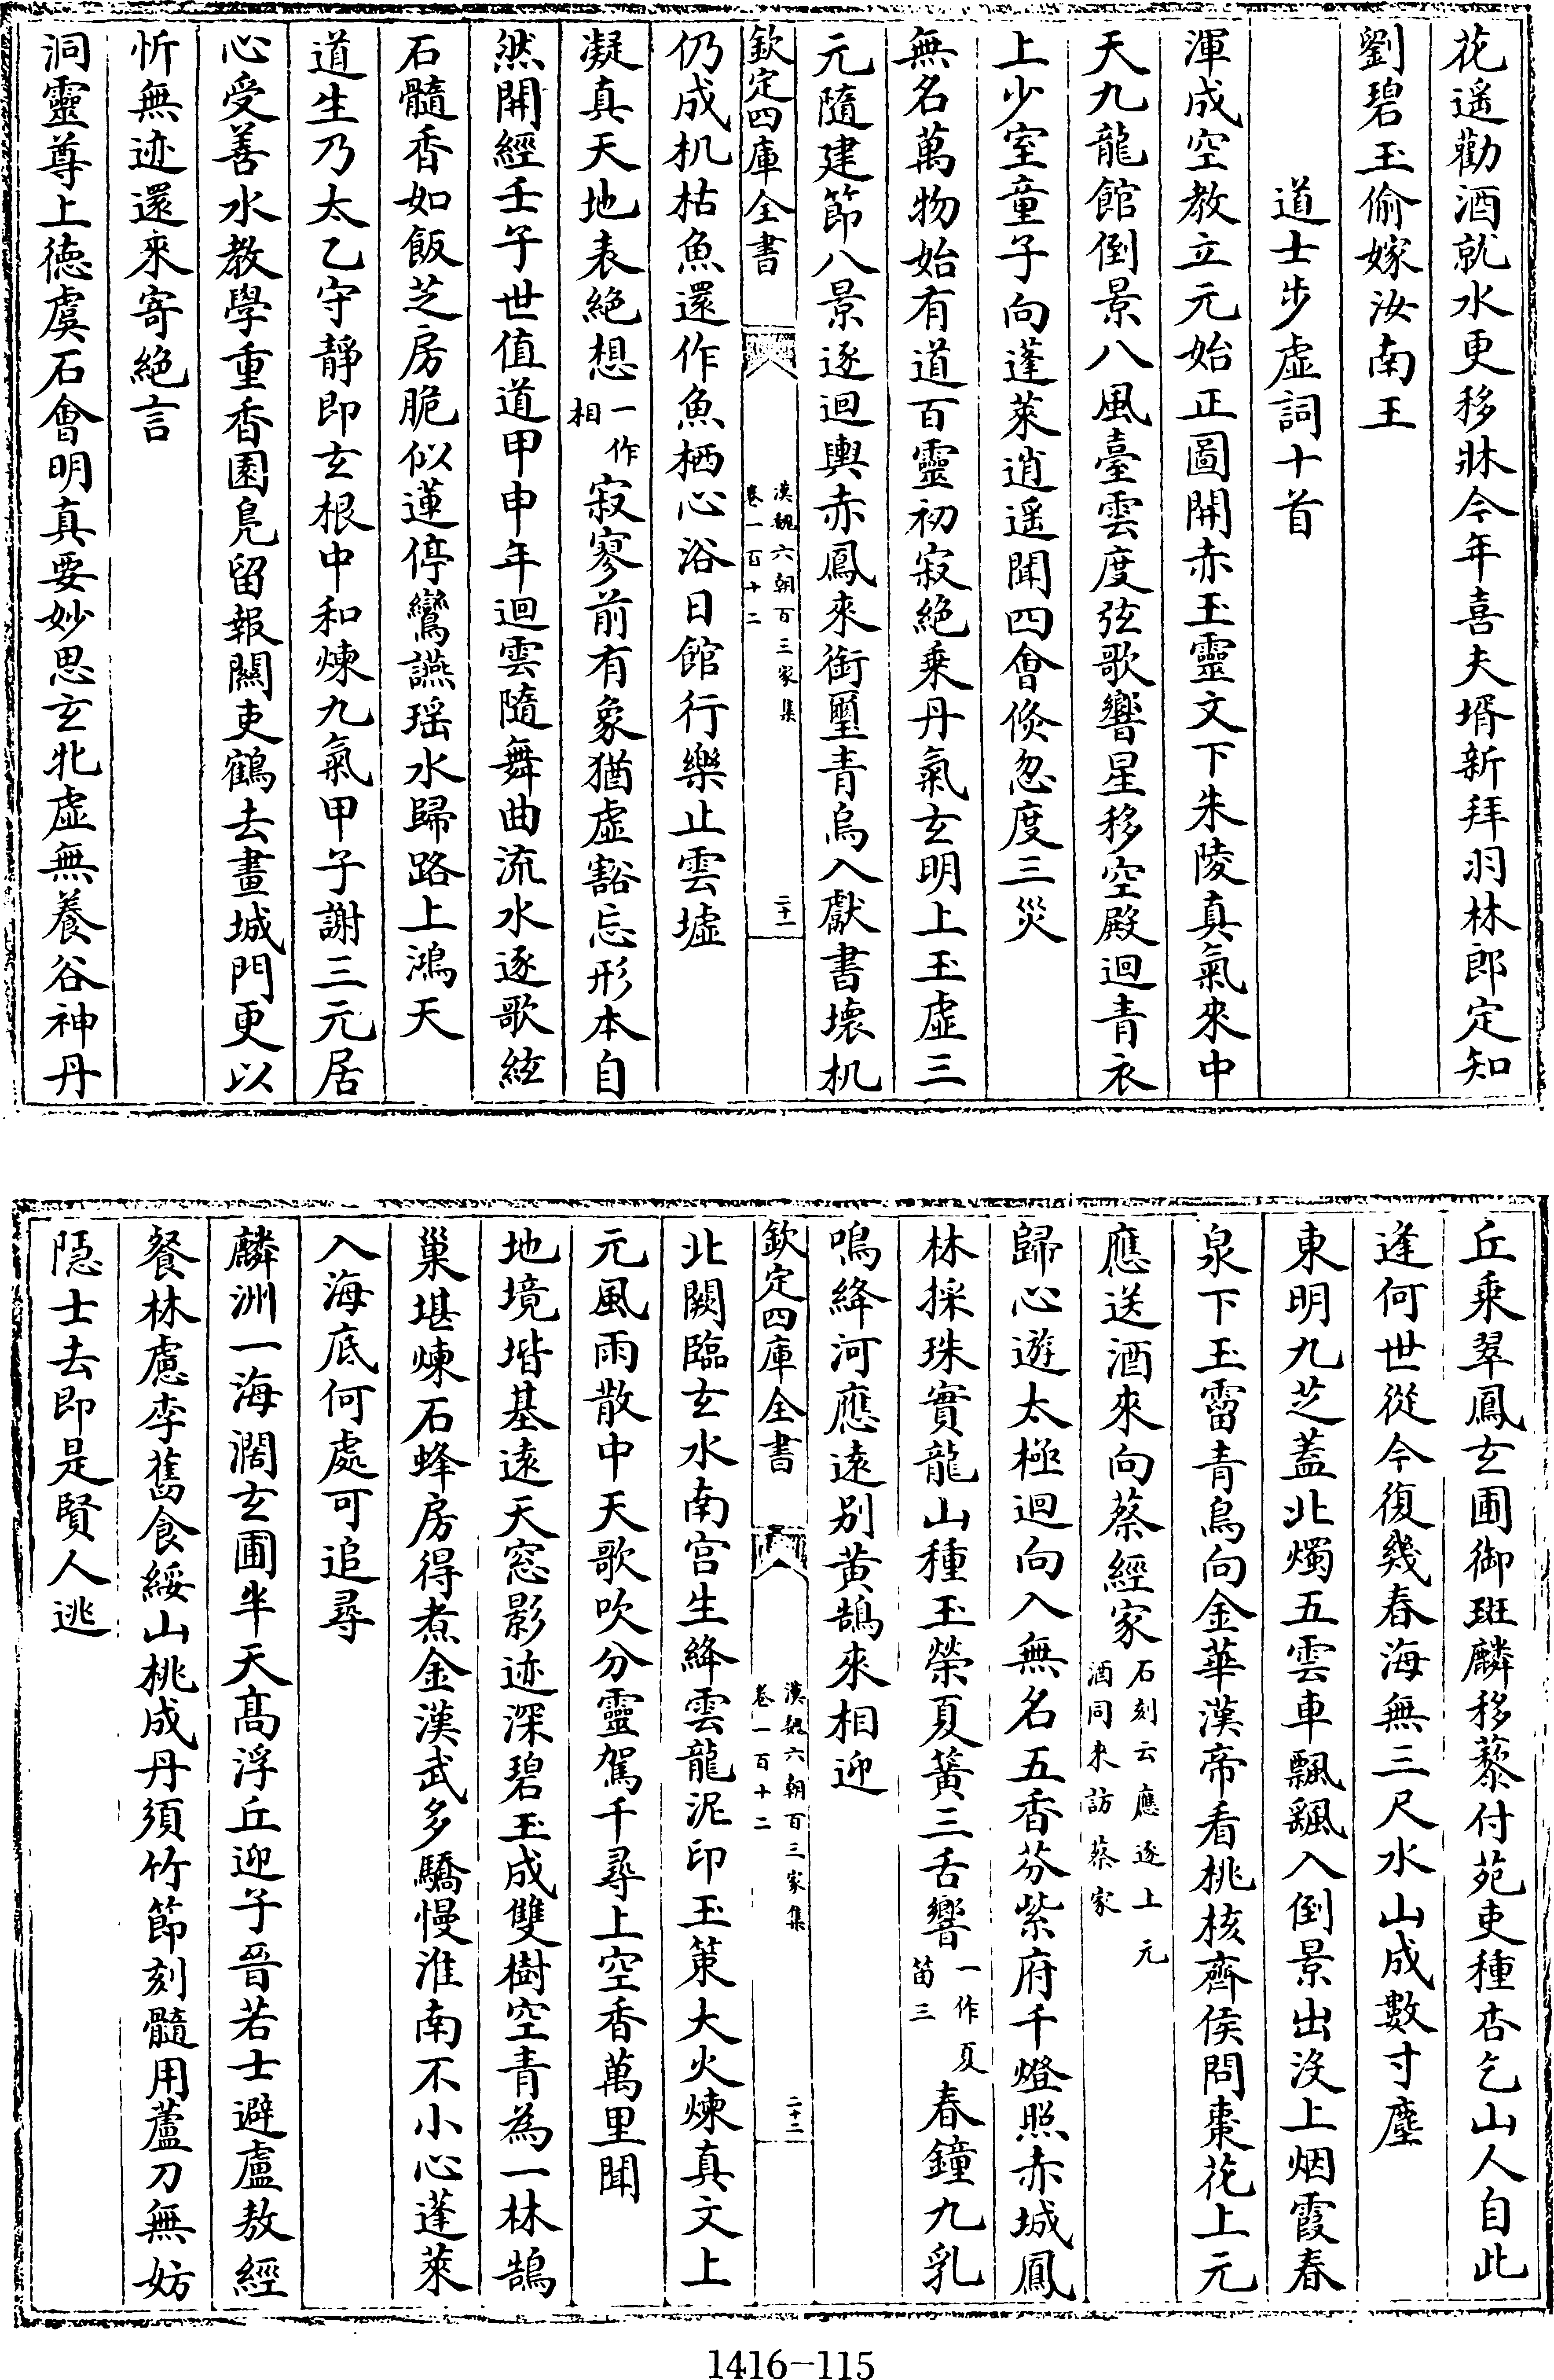 花遥勸酒就水更移牀今年喜夫壻新拜羽林郎定知
劉碧玉偷嫁汝南王
道士步虚詞十首
渾成空教立元始正圖開赤玉靈文下朱陵真氣來中
天九龍館倒景八風臺雲度弦歌響星移空殿迴青衣
上少室童子向蓬萊逍遥聞四會倐忽度三災
無名萬物始有道百靈初寂絶乗丹氣玄明上玉虚三
元隨建節八景逐迴輿赤鳳來銜璽青鳥入獻書壊机
欽定四庫全書
漢魏六朝百三家集
卷一百十二
二十一
仍成机枯魚還作魚栖心浴日館行樂止雲墟
凝真天地表絶想一作相寂寥前有象猶虚豁忘形本自
然開經壬子世值道甲申年迴雲隨舞曲流水逐歌絃
石髓香如飯芝房脆似蓮停鸞讌瑶水歸路上鴻天
道生乃太乙守靜即玄根中和煉九氣甲子謝三元居
心受善水教學重香園鳬留報關吏鶴去畫城門更以
忻無迹還來寄絶言
洞靈尊上徳虞石會明真要妙思玄牝虚無養谷神丹
丘乗翠鳳玄圃御斑麟移藜付苑吏種杏乞山人自此
逢何世從今復幾春海無三尺水山成數寸塵
東明九芝蓋北燭五雲車飄飖入倒景出沒上烟霞春
泉下玉霤青鳥向金華漢帝看桃核齊侯問棗花上元
應送酒來向蔡經家石刻云應逐上元酒同來訪蔡家
歸心遊太極迴向入無名五香芬紫府千燈照赤城鳳
林採珠實龍山種玉榮夏簧三舌響一作夏笛三春鐘九乳
鳴絳河應遠别黄鵠來相迎
欽定四庫全書
漢魏六朝百三家集
卷一百十二
二十二
北闕臨玄水南宫生絳雲龍泥印玉策大火煉真文上
元風雨散中天歌吹分靈駕千尋上空香萬里聞
地境堦基遠天窓影迹深碧玉成雙樹空青為一林鵠
巢堪煉石蜂房得煮金漢武多驕慢淮南不小心蓬萊
入海底何處可追尋
麟洲一海濶玄圃半天髙浮丘迎子晉若士避盧敖經
餐林慮李舊食綏山桃成丹須竹節刻髓用蘆刀無妨
隠士去即是賢人逃
1416-115